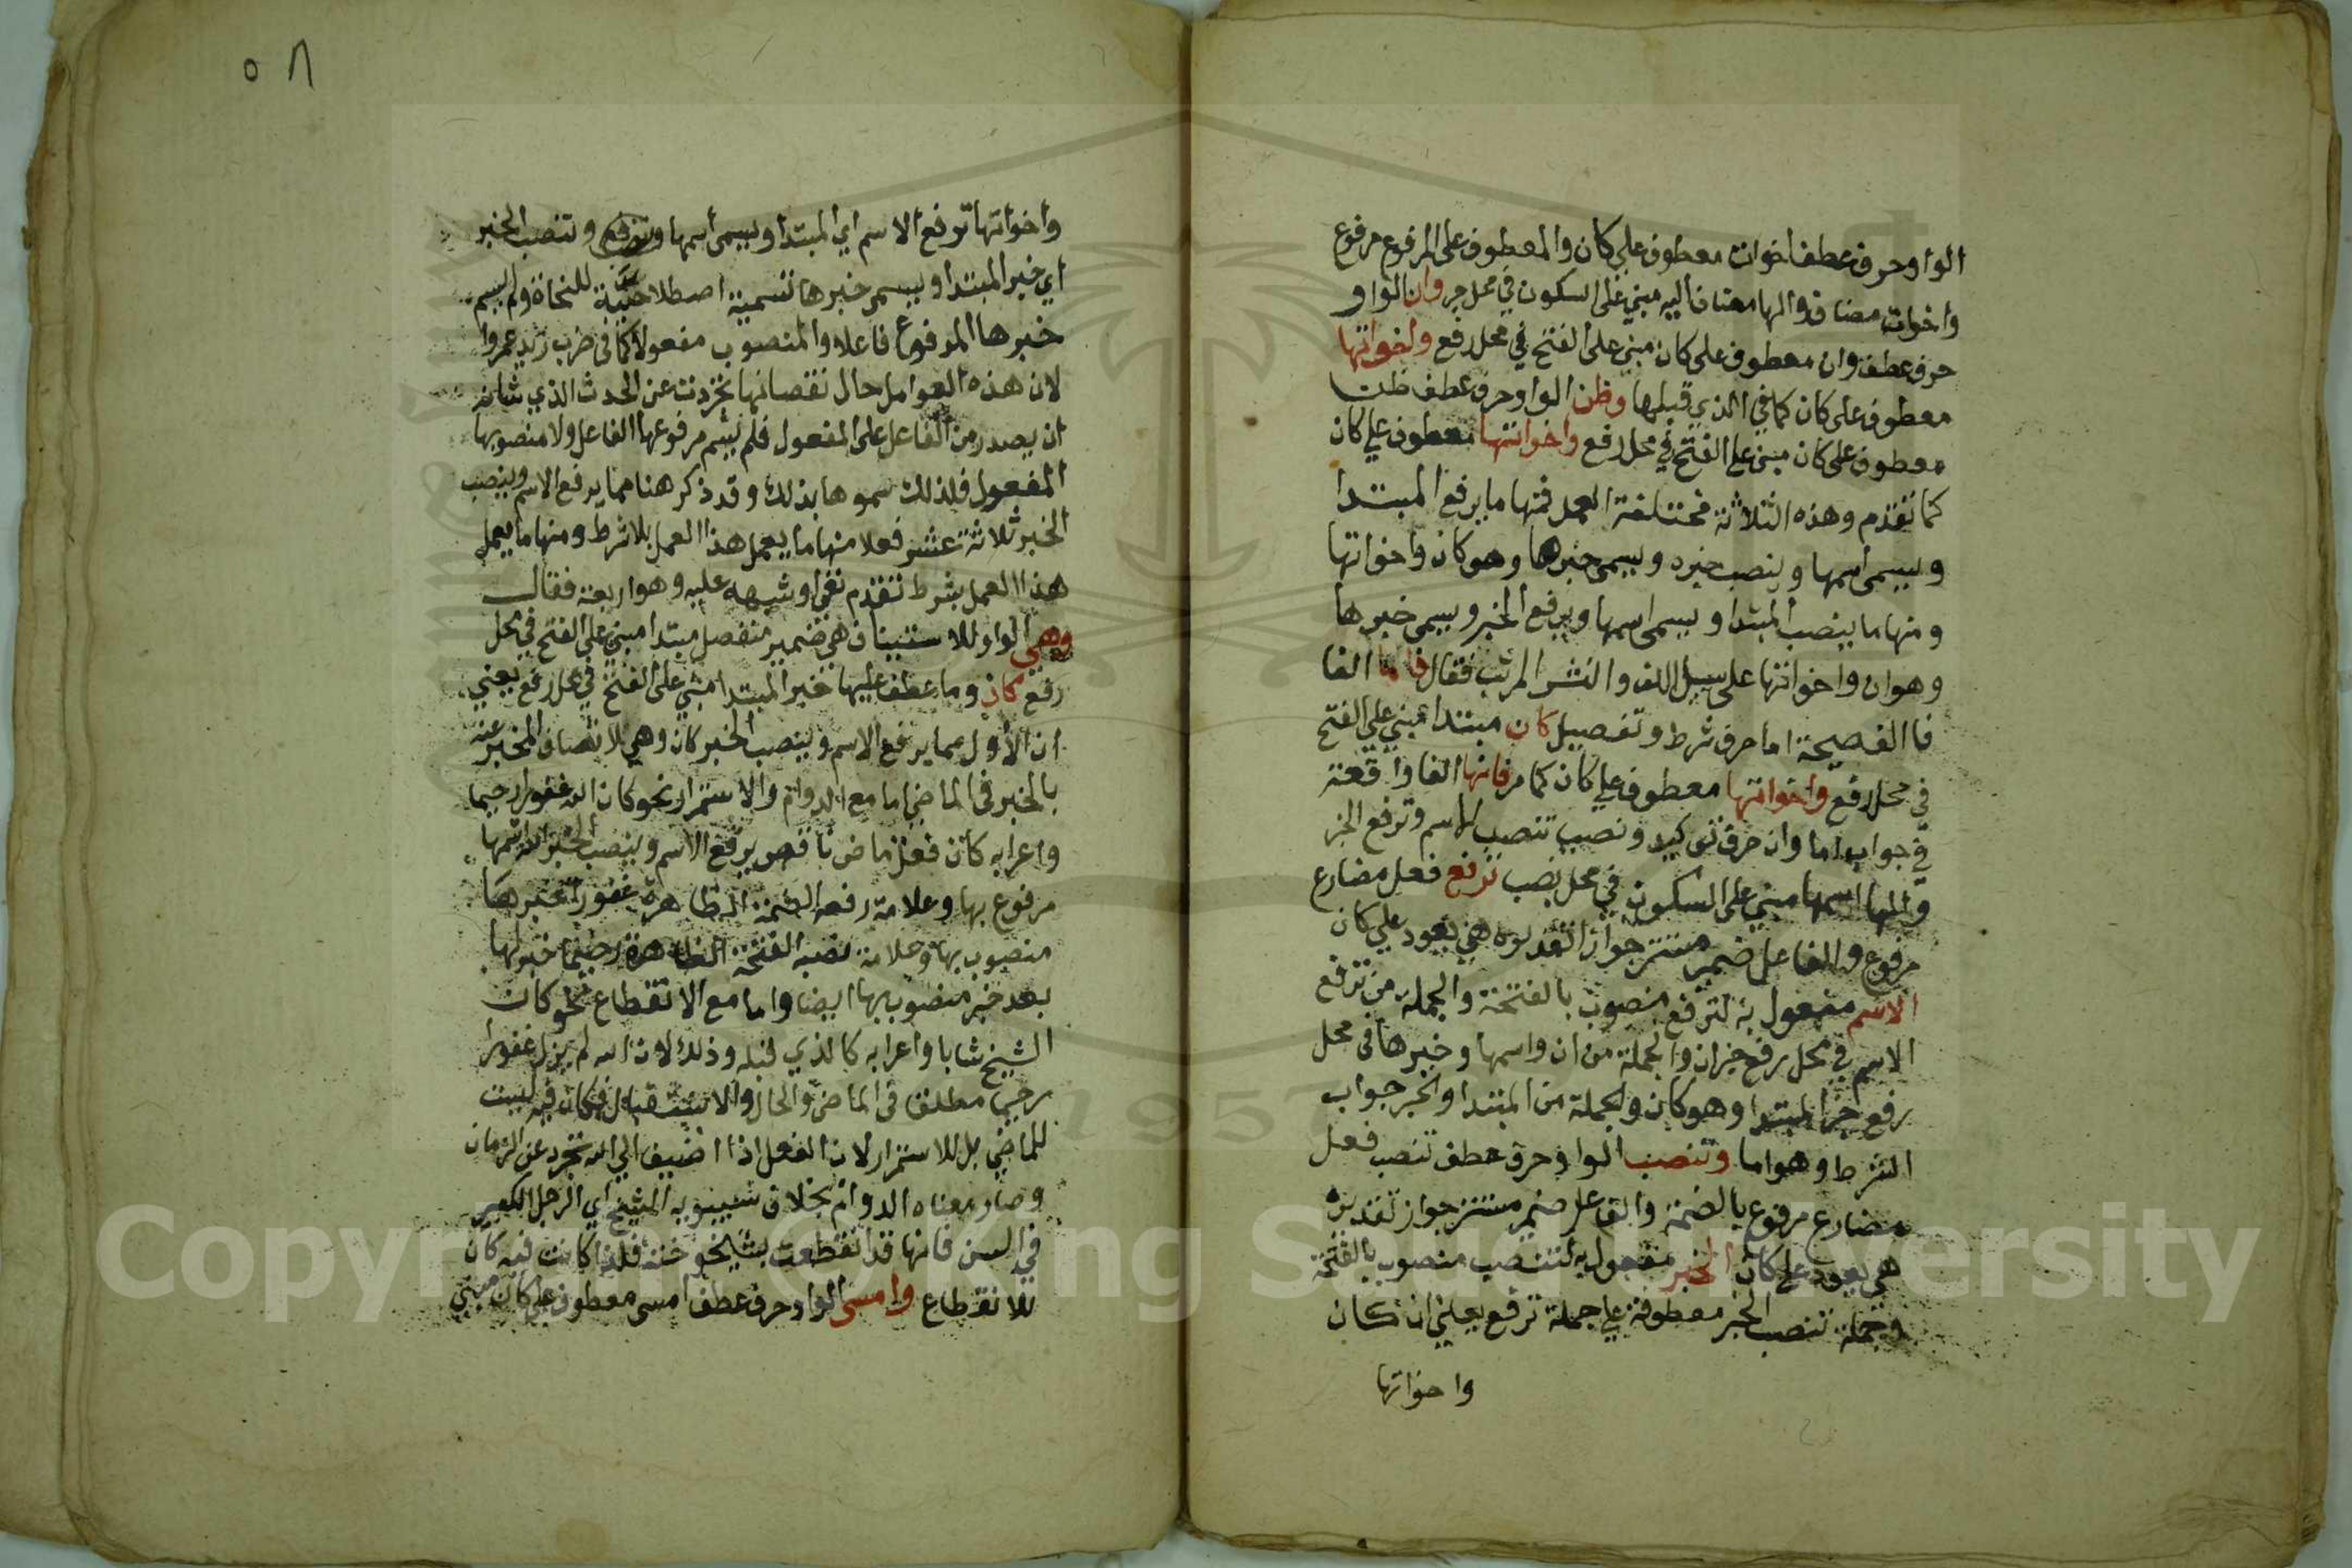 الواو حرف عطف اخوات معطوف على كان والمعطوف على المرفوع مرفوع
واخوات مضاف والها مضاف اليه مبني على السكون في محل جر وان الواو
حرف عطف وان معطوف على كان مبني على الفتح في محل رفع واخواتها
معطوف على كان كما في الذي قبلها وظن الواو حرف عطف ظن
معطوف على كان مبني على الفتح في محل رفع واخواتها معطوف على كان
كما تقدم وهذه الثلاثة مختلفة العمل فمنها ما يرفع المبتدا
ويسمى اسمها وينصب خبره ويسمى خبرها وهو كان واخواتها
ومنها ما ينصب المبتدا ويسمى اسمها ويرفع الخبر ويسمى خبرها
وهو ان واخواتها على سبيل اللف والنشر المرتب فقال فاما الفا
فا الفصيحة اما حرف شرط وتفصيل كان مبتدا مبني على الفتح
في محل رفع واخواتها معطوف على كان كما مر فانها الفا واقعة
في جواب اما وان حرف توكيد ونصب تنصب الاسم وترفع الخبر
والها اسمها مبني على السكون في محل نصب ترفع فعل مضارع
مرفوع والفاعل ضمير مستتر جوازا تقديره هي يعود على كان
الاسم مفعول به لترفع منصوب بالفتحة والجملة من ترفع
الاسم في محل رفع خبر ان والجملة من ان واسمها وخبرها في محل
رفع خبر المبتدا وهو كان والجملة من المبتدا والخبر جواب
الشرط وهو اما وتنصب الواو حرف عطف تنصب فعل
مضارع مرفوع بالضمة والفاعل ضمير مستتر جواز تقديره
هي يعود على كان الخبر مفعول به لتنصب منصوب بالفتحة
وجملة تنصب الخبر معطوفة على جملة ترفع يعني ان كان
واخواتها
٥٨
واخواتها ترفع الاسم اي المبتدا ويسمى اسمها وتنصب الخبر
اي خبر المبتدا ويسمى خبرها تسمية اصطلاحية للنحاة ولم يسم
خبرها المرفوع فاعلا والمنصوب مفعولا كما في ضرب زيد عمروا
لان هذه العوامل حال نقصانها تجردت عن الحدث الذي شانه
ان يصدر من الفاعل على المفعول فلم يسم مرفوعها الفاعل ولا منصوبها
المفعول فلذلك سموها بذلك وقد ذكر هنا مما يرفع الاسم وينصب
الخبر ثلاثة عشر فعلا منها ما يعمل هذا العمل بلا شرط ومنها ما يعمل
هذا العمل بشرط تقدم نفي او شبهه عليه وهو اربعة فقال
وهي الواو للاستيناف هي ضمير منفصل مبتدا مبني على الفتح في محل
رفع كان وما عطف عليها خبر المبتدا مبني على الفتح في محل رفع يعني
ان الأول مما يرفع الاسم وينصب الخبر كان وهي لاتصاف المخبر عنه
بالخبر في الماضي اما مع الدوام والاستمرار نحو كان الله غفورا رحيما
واعرابه كان فعل ماض ناقص يرفع الاسم وينصب الخبر الله اسمها
مرفوع بها وعلامة رفعه الضمة الظاهرة غفورا خبرها
منصوب بها وعلامة نصبه الفتحة الظاهرة رحيما خبر لها
بعد خبر منصوب بها ايضا واما مع الانقطاع نحو كان
الشيخ شابا واعرابه كالذي قبله وذلك لان الله لم يزل غفورا
رحيما مطلقا في الماضي والحال والاستقبال فكان فيه ليست
للماضي بل للاستمرار لان الفعل اذا اضيف الى الله تجرد عن الزمان
وصار معناه الدوام بخلاف شبيبوبه الشيخ اي الرجل الكبير
في السن فانها قد انقطعت بشيخوخته فلذا كانت فيه كان
للانقطاع وامسى الواو حرف عطف امسى معطوف على كان مبني